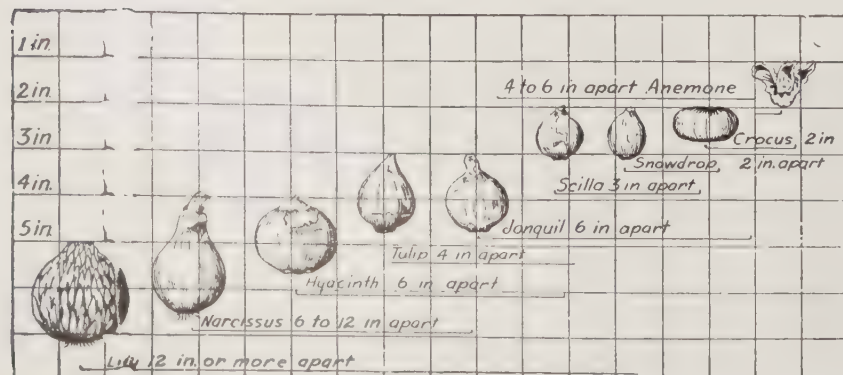 1 in.
2 in.
3 in.
4 in.
5 in.
4 to 6 in apart Anemone
Crocus, 2 in
Snowdrop, 2 in. apart
Scilla 3 in apart,
Jonquil 6 in apart
Tulip 4 in apart
Hyacinth 6 in apart
Narcissus 6 to 12 in apart
Lily 12 in. or more apart